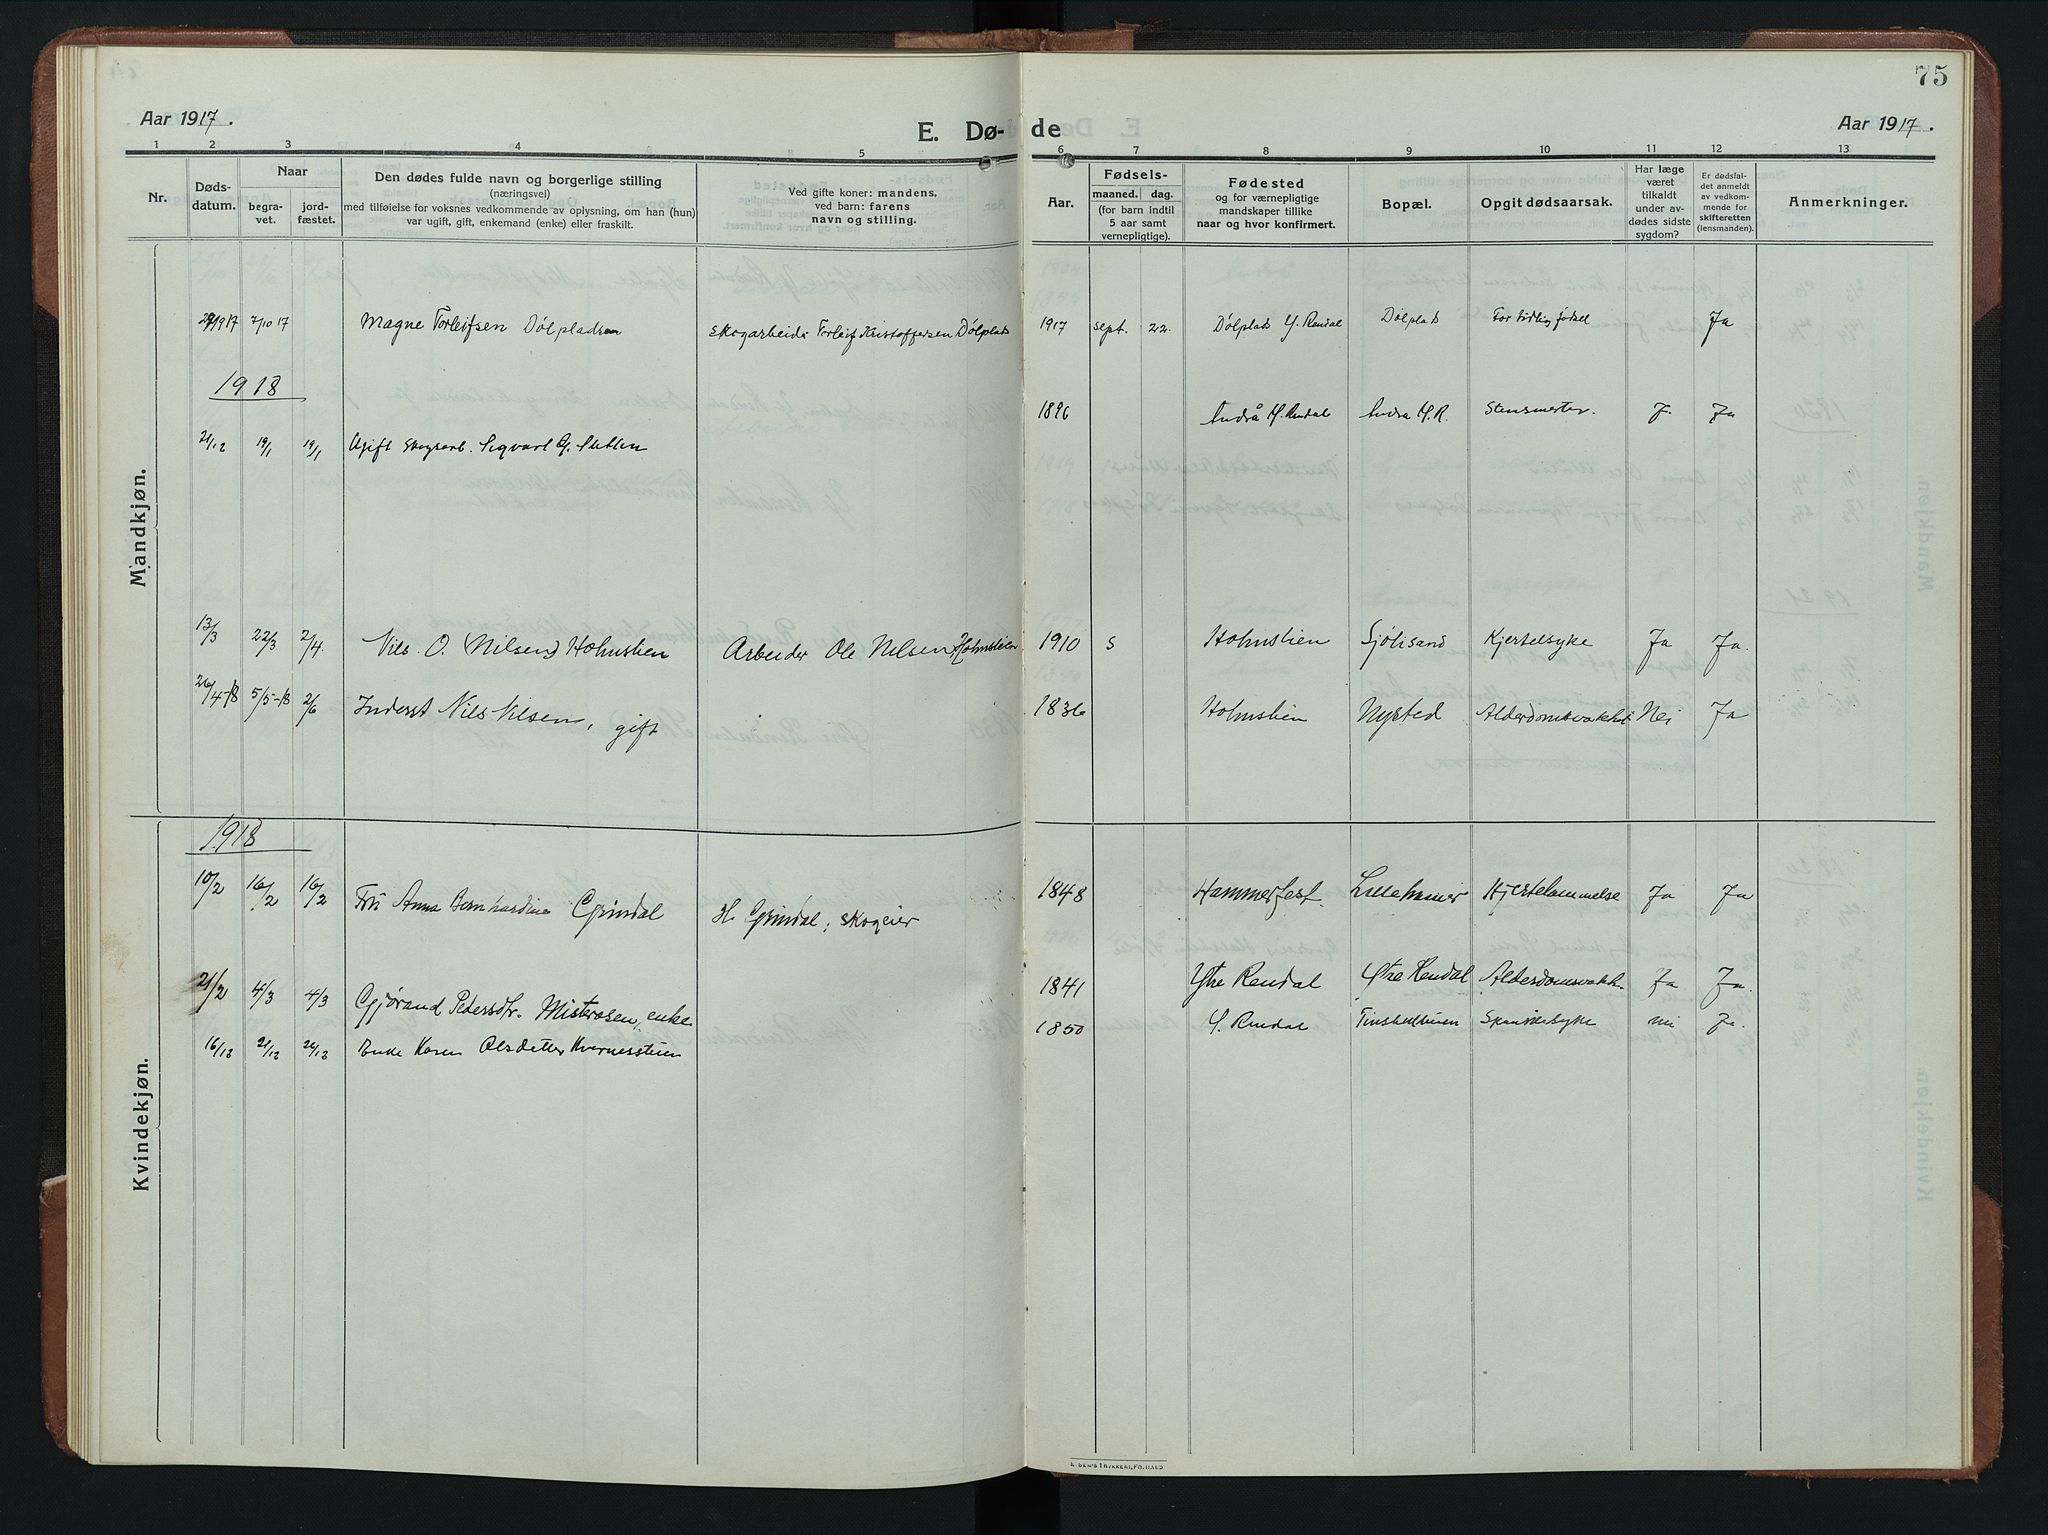 75
Aar 1917.
E. Dø-
de
Aar 1917.
1 2 3 4 5 6 7 8 9 10 11 12 13
Nr.
Døds-
datum.
Naar
begra-
vet.
jord-
fæstet.
Den dødes fulde navn og borgerlige stilling
(næringsvei)
med tilføielse for voksnes vedkommende av oplysning, om han (hun)
var ugift, gift, enkemand (enke) eller fraskilt.
Ved gifte koner: mandens,
ved barn: farens
navn og stilling.
Aar.
Fødsels-
maaned. dag.
(for barn indtil
5 aar samt
vernepligtige).
Fødested
og for værnepligtige
mandskaper tillike
naar og hvor konfirmert.
Bopæl.
Opgit dødsaarsak.
Har læge
været
tilkaldt
under av-
dødes sidste
sygdom?
Er dødsfal-
det anmeldt
av vedkom-
mende for
skifteretten
(lensmanden).
Anmerkninger.
Mandkjøn.
7/10 17 Magne Torleifsen Dølpladsen skogarbeid. Torleif Kristoffersen Dølplads 1917 sept. 22. Dølplads Y. Rendal Dølplads For tidlig fødsel Ja
1918
1896 Andrå Y. Rendal Andrå Y. R. J. Ja
21/12 19/1 19/1 Ugift skogsarb. Sigvart G.
13/3 22/3 2/4. Nils O. (Nilsen) Holmslien Arbeider Ole Nilsen Holmslien 1910 S Holmslien Sjølisand Kjertelsyke Ja Ja.
26/4-18 5/5-18 2/6 Inderst Nils Nilsen, gift 1836 Holmslien Nysted Alderdomssvakhet Nei Ja
Kvindekjøn.
1918
10/2 16/2 16/2 Fru Anna Bernhardine Grindal H. Grindal, skogeier 1848 Hammerfest Lillehamer Hjertelammelse Ja Ja
21/2 4/3 4/3 Gjørand Pedersdtr. Misterosen, enke 1841 Ytre Rendal Ytre Rendal Alderdomsvakh. Ja Ja.
16/12 21/12 Enke Karen Olsdetter 1850 Y. Rendal Spanskesyke nei Ja.